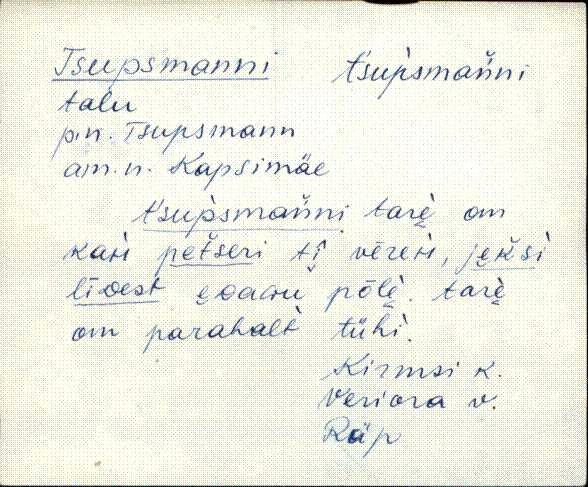 Tsupsmanni t́sùpsmaňni
talu
p.n. Tsupsmann
am.n. Kapsimäe
t́sùpsmaňni tarè̬ om
petšeri tī vēreH, je̬kšì
līDest põlè̬. tarè̬
om parahalt tühi.
Kirmsi k.
Veriora v.
Räp